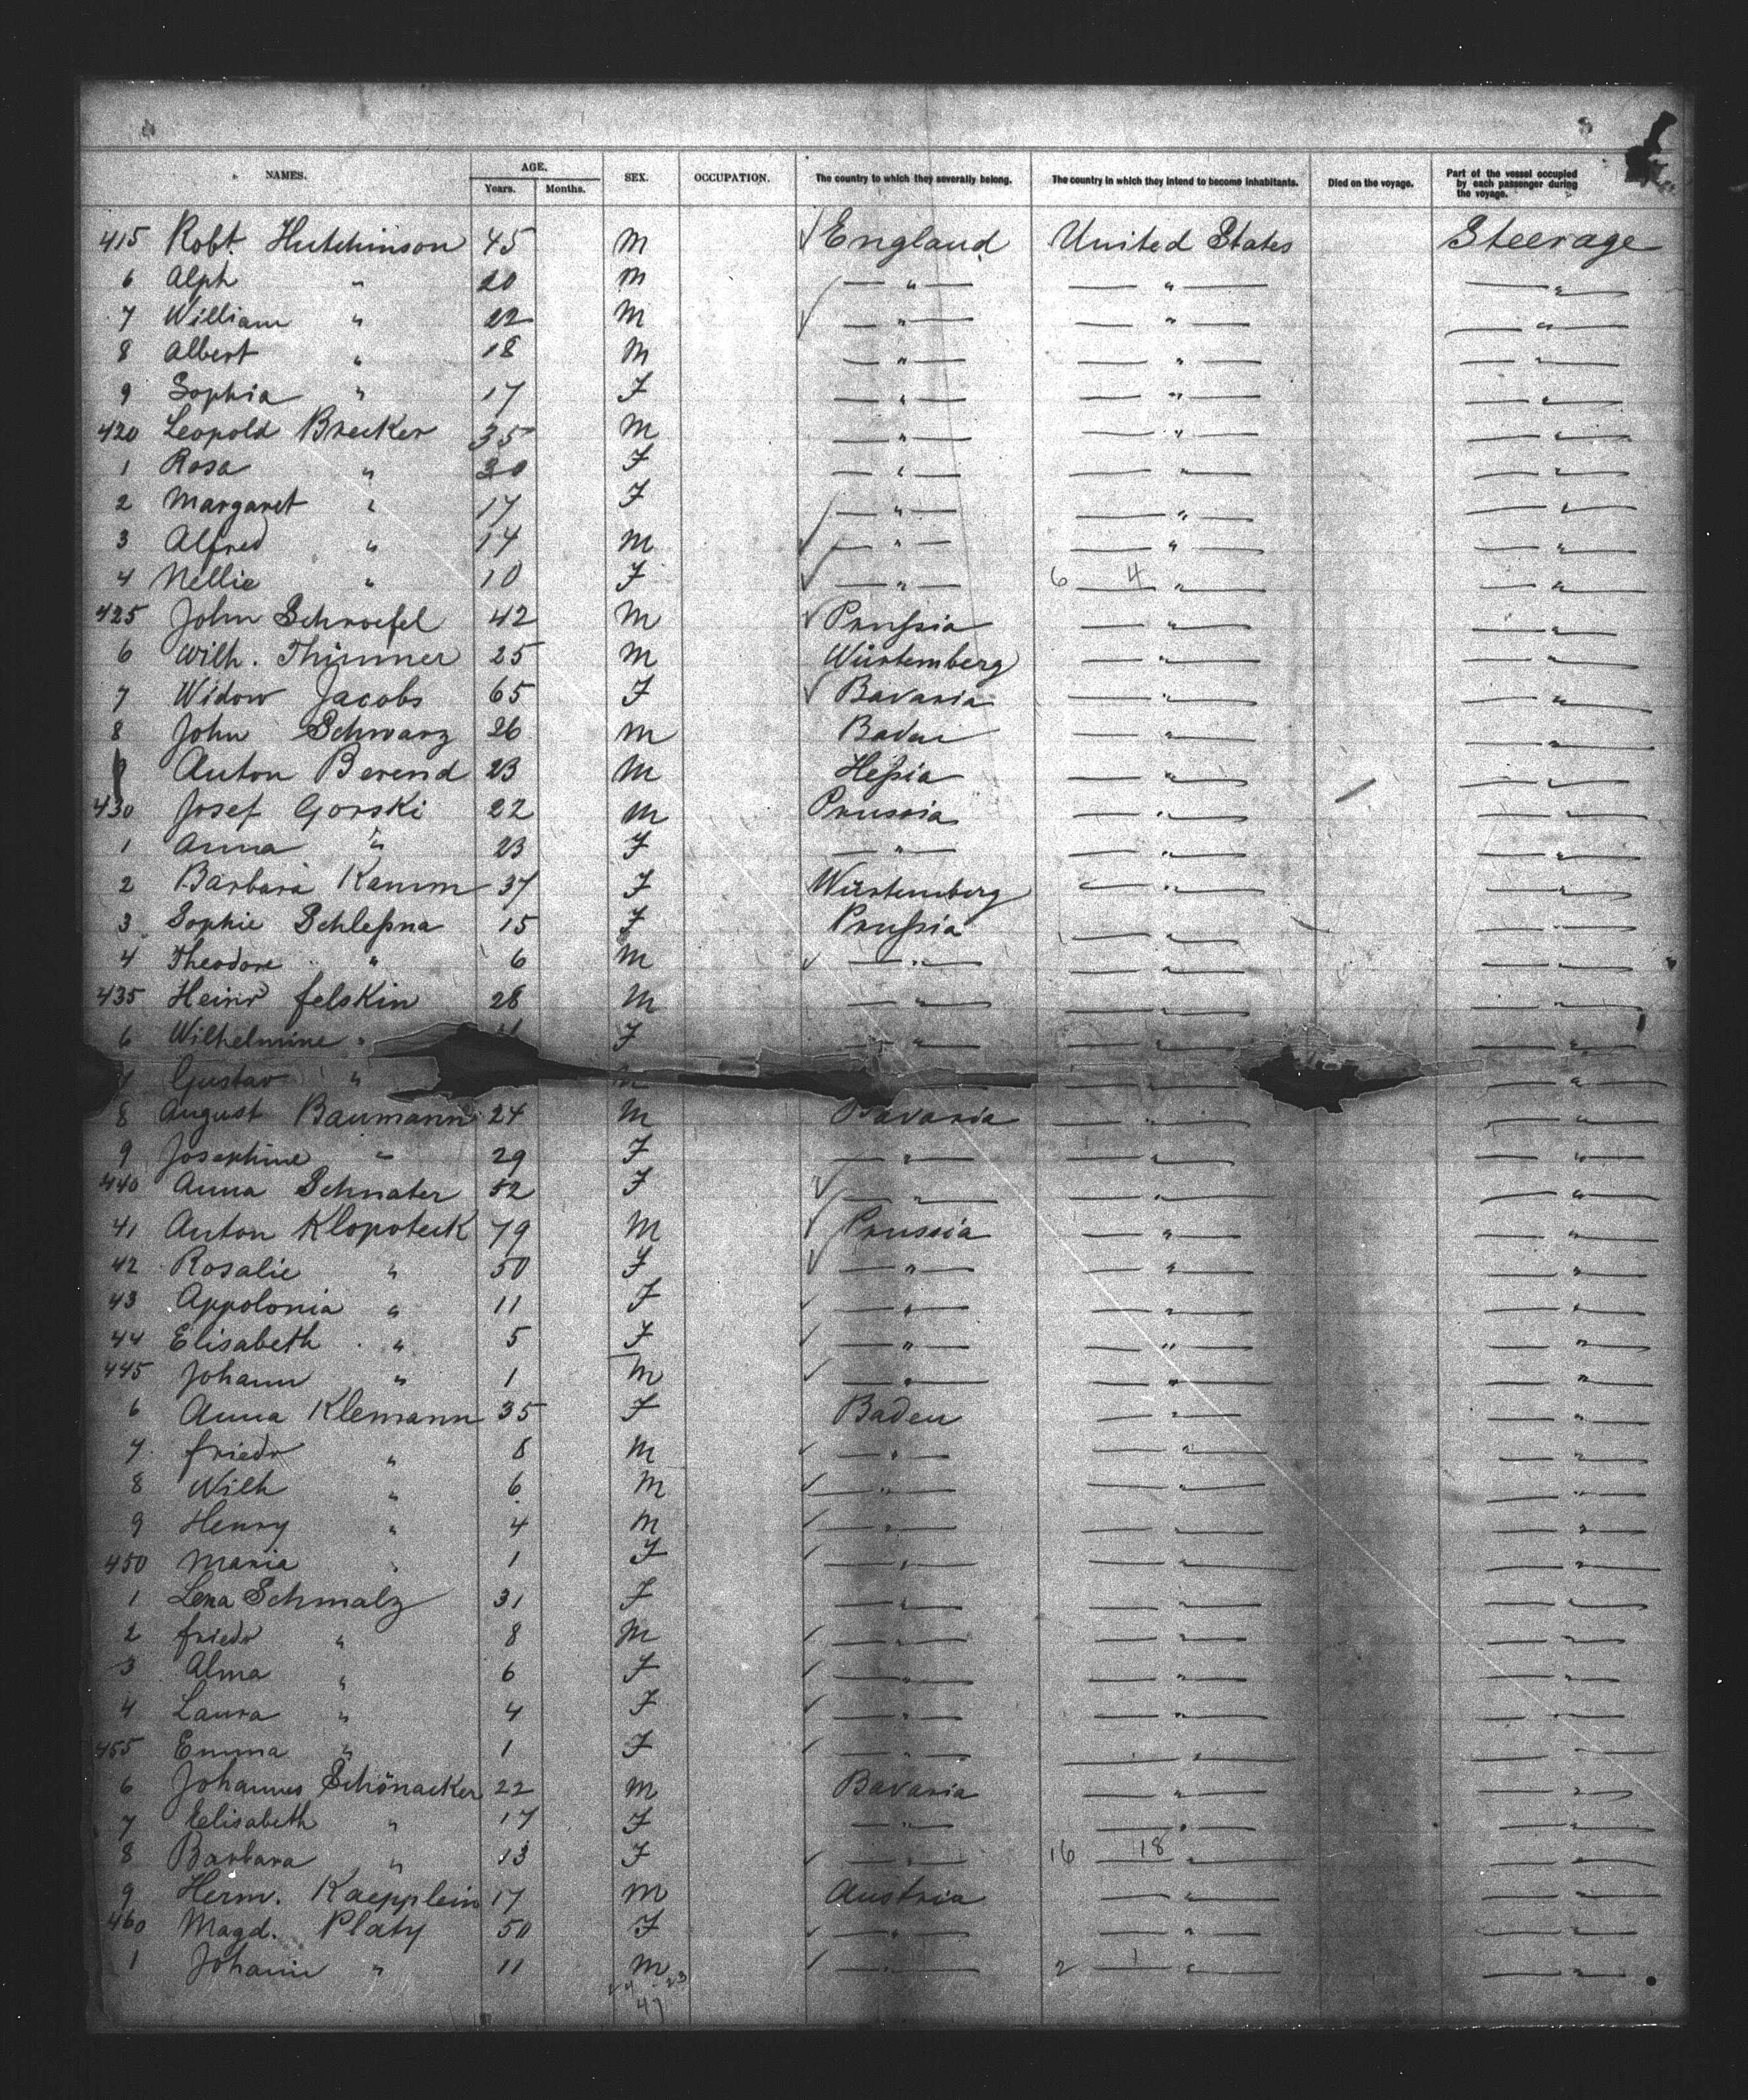 NAMES. AGE. Years. Months. SEX. OCCUPATION. The country to which they severally belong. The country in which they intend to become inhabitants. Died on the voyage. Part of the vessel occupied by each passenger during the voyage.
415 Robt. Hutchinson 45 M England United States Steerage
6 Alph " 20 M " " "
7 William " 22 M " " "
8 Albert " 18 M " " "
9 Sophia " 17 F " " "
420 Leopold Brecker 35 M " " "
1 Rosa " 30 F " " "
2 Margaret " 17 F " " "
3 Alfred " 14 M " " "
4 Nellie " 10 F " 6 4 " "
425 John Schroefel 42 M Prußia " "
6 Wilh. Thimmer 25 M Würtemberg " "
7 Widow Jacobs 65 F Bavaria " "
8 John Schwarz 26 M Baden " "
9 Anton Berend 23 M Heßia " "
430 Josef Gorski 22 M Prussia " "
1 Anna " 23 F " " "
2 Barbara Kamm 37 F Würtemberg " "
3 Sophie Schleßna 15 F Prußia " "
4 Theodore " 6 M " " "
435 Heinr felskin 28 M " " "
6 Wilhelmine " F " " "
7 Gustav " M "
8 August Baumann 24 M Bavaria " "
9 Josephine " 29 F " " "
440 Anna Schnater 52 F " " "
41 Anton Klopoteck 79 M Prussia " "
42 Rosalie " 50 F " " "
43 Appolonia " 11 F " " "
44 Elisabeth " 5 F " " "
445 Johann " 1 M " " "
6 Anna Klemann 35 F Baden " "
7 friedr " 8 M " " "
8 Wilh " 6 M " " "
9 Henry " 4 M " " "
450 Maria " 1 F " " "
1 Lena Schmalz 31 F " " "
2 friedr " 8 M " " "
3 Alma " 6 F " " "
4 Laura " 4 F " " "
455 Emma " 1 F " " "
6 Johannes Schönacker 22 M Bavaria " "
7 Elisabeth " 17 F " " "
8 Barbara " 13 F " 16 18 " "
9 Herm. Kaepplein 17 M Austria " "
460 Magd. Platy 50 F " " "
1 Johann " 11 M " 2 1 " "
24 23
47